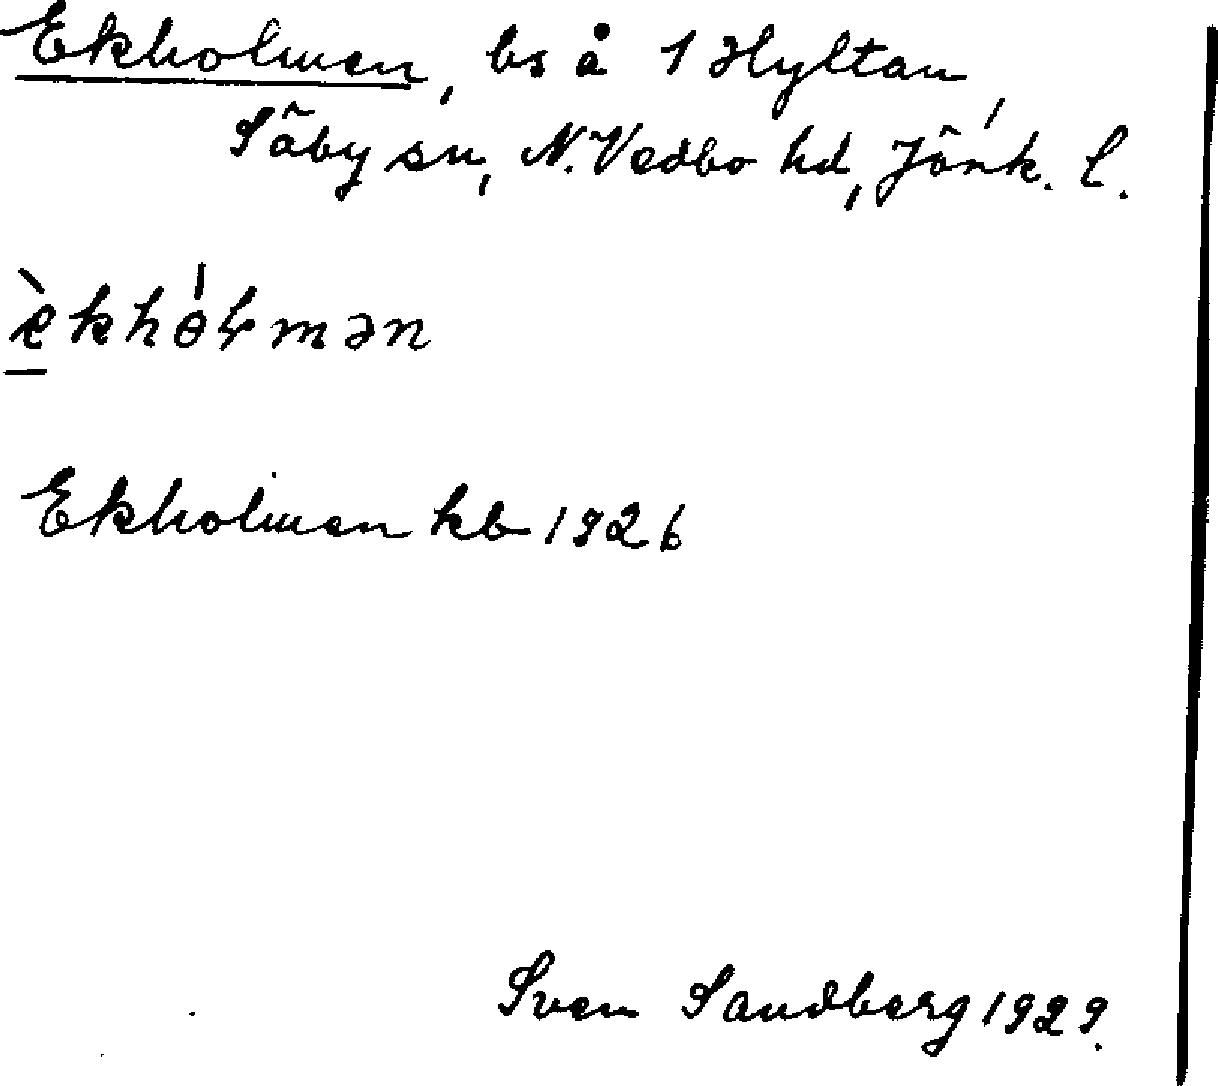 Ekholmen, bs å 1 Hyltan,
Säby sn, N. Vedbo hd, Jönk. l.
èkhɵ́ɫmən
Ekholmen kb 1926
Sven Sandberg 1929.